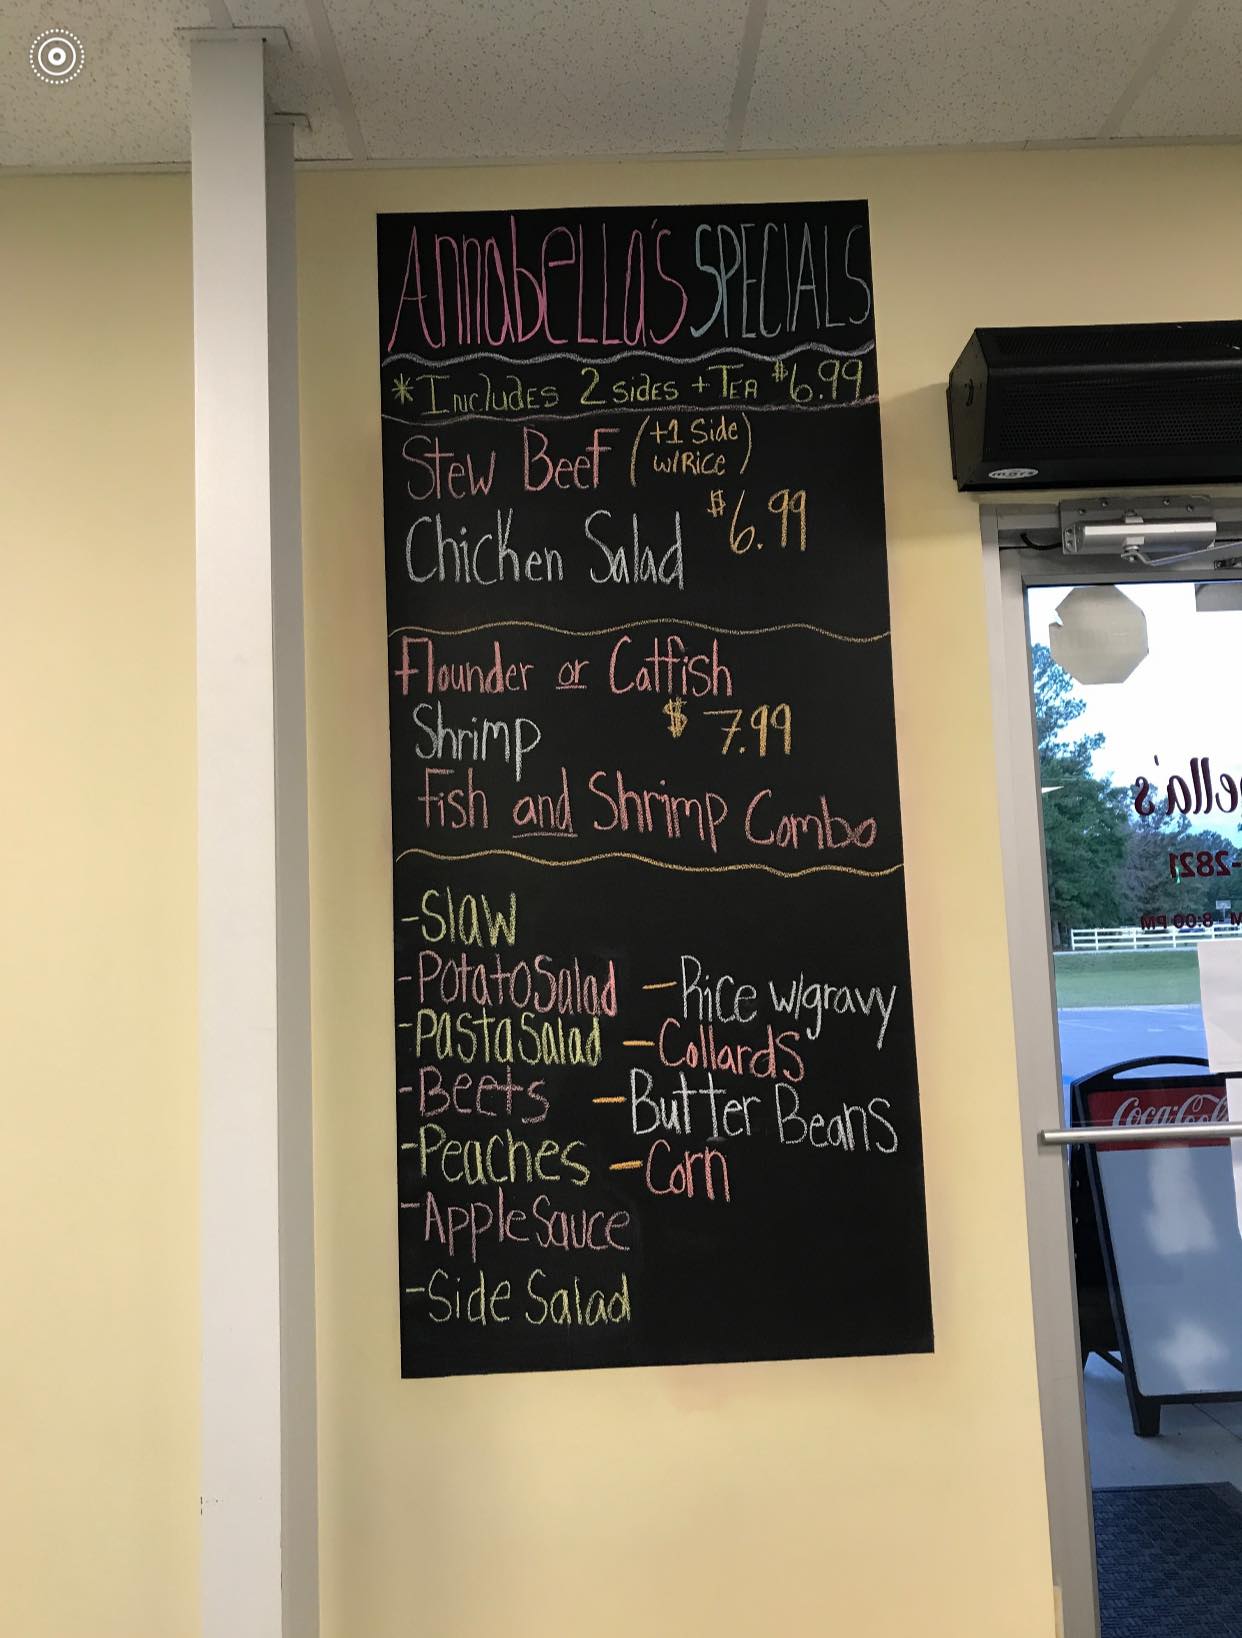 Annabella's SPECIALS
*Includes 2 sides + Tea $6.99
Stew Beef (+1 Side w/Rice)
$6.99
Chicken Salad
Flounder or Catfish
Shrimp $7.99
Fish and Shrimp Combo
-Slaw
-Potato Salad
-Pasta Salad
-Beets
-Peaches
-Apple Sauce
-Side Salad
-Rice w/gravy
-Collards
-Butter Beans
-Corn
mars
ella's
-2821
M - 8:00 PM
Coca-Cola